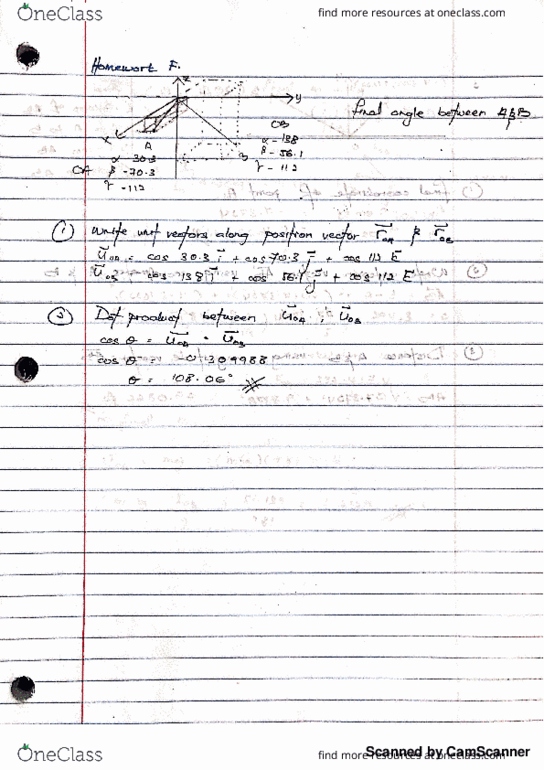 OneClass
find more resources at oneclass.com
Homework F.
z
y
x
A
B
find angle between A & B
OB
α - 138
β - 56.1
γ - 112
OA
α 30.3
β - 70.3
γ - 112
① Write unit vectors along position vector r_OA & r_OB
u_OA = cos 30.3 i + cos 70.3 j + cos 112 k
u_OB = cos 138 i + cos 56.1 j + cos 112 k
② Dot product between u_OA, u_OB
cos θ = u_OA · u_OB
cos θ = - 0.309988
θ = 108.06°
OneClass
find more resources at oneclass.com
Scanned by CamScanner